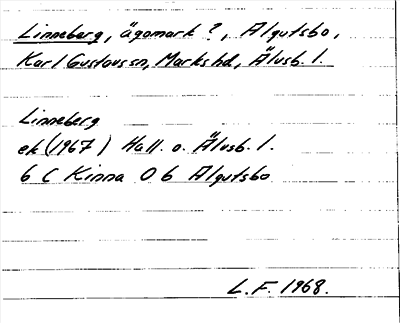 Linneberg, ägomark?, Älgutsbo,
Karl Gustavssn, Marks hd, Älvsb. l.
Linneberg
ek (1967) Hall. o. Älvsb. l.
6 C Kinna 0 b Älgutsbo
L.F. 1968.